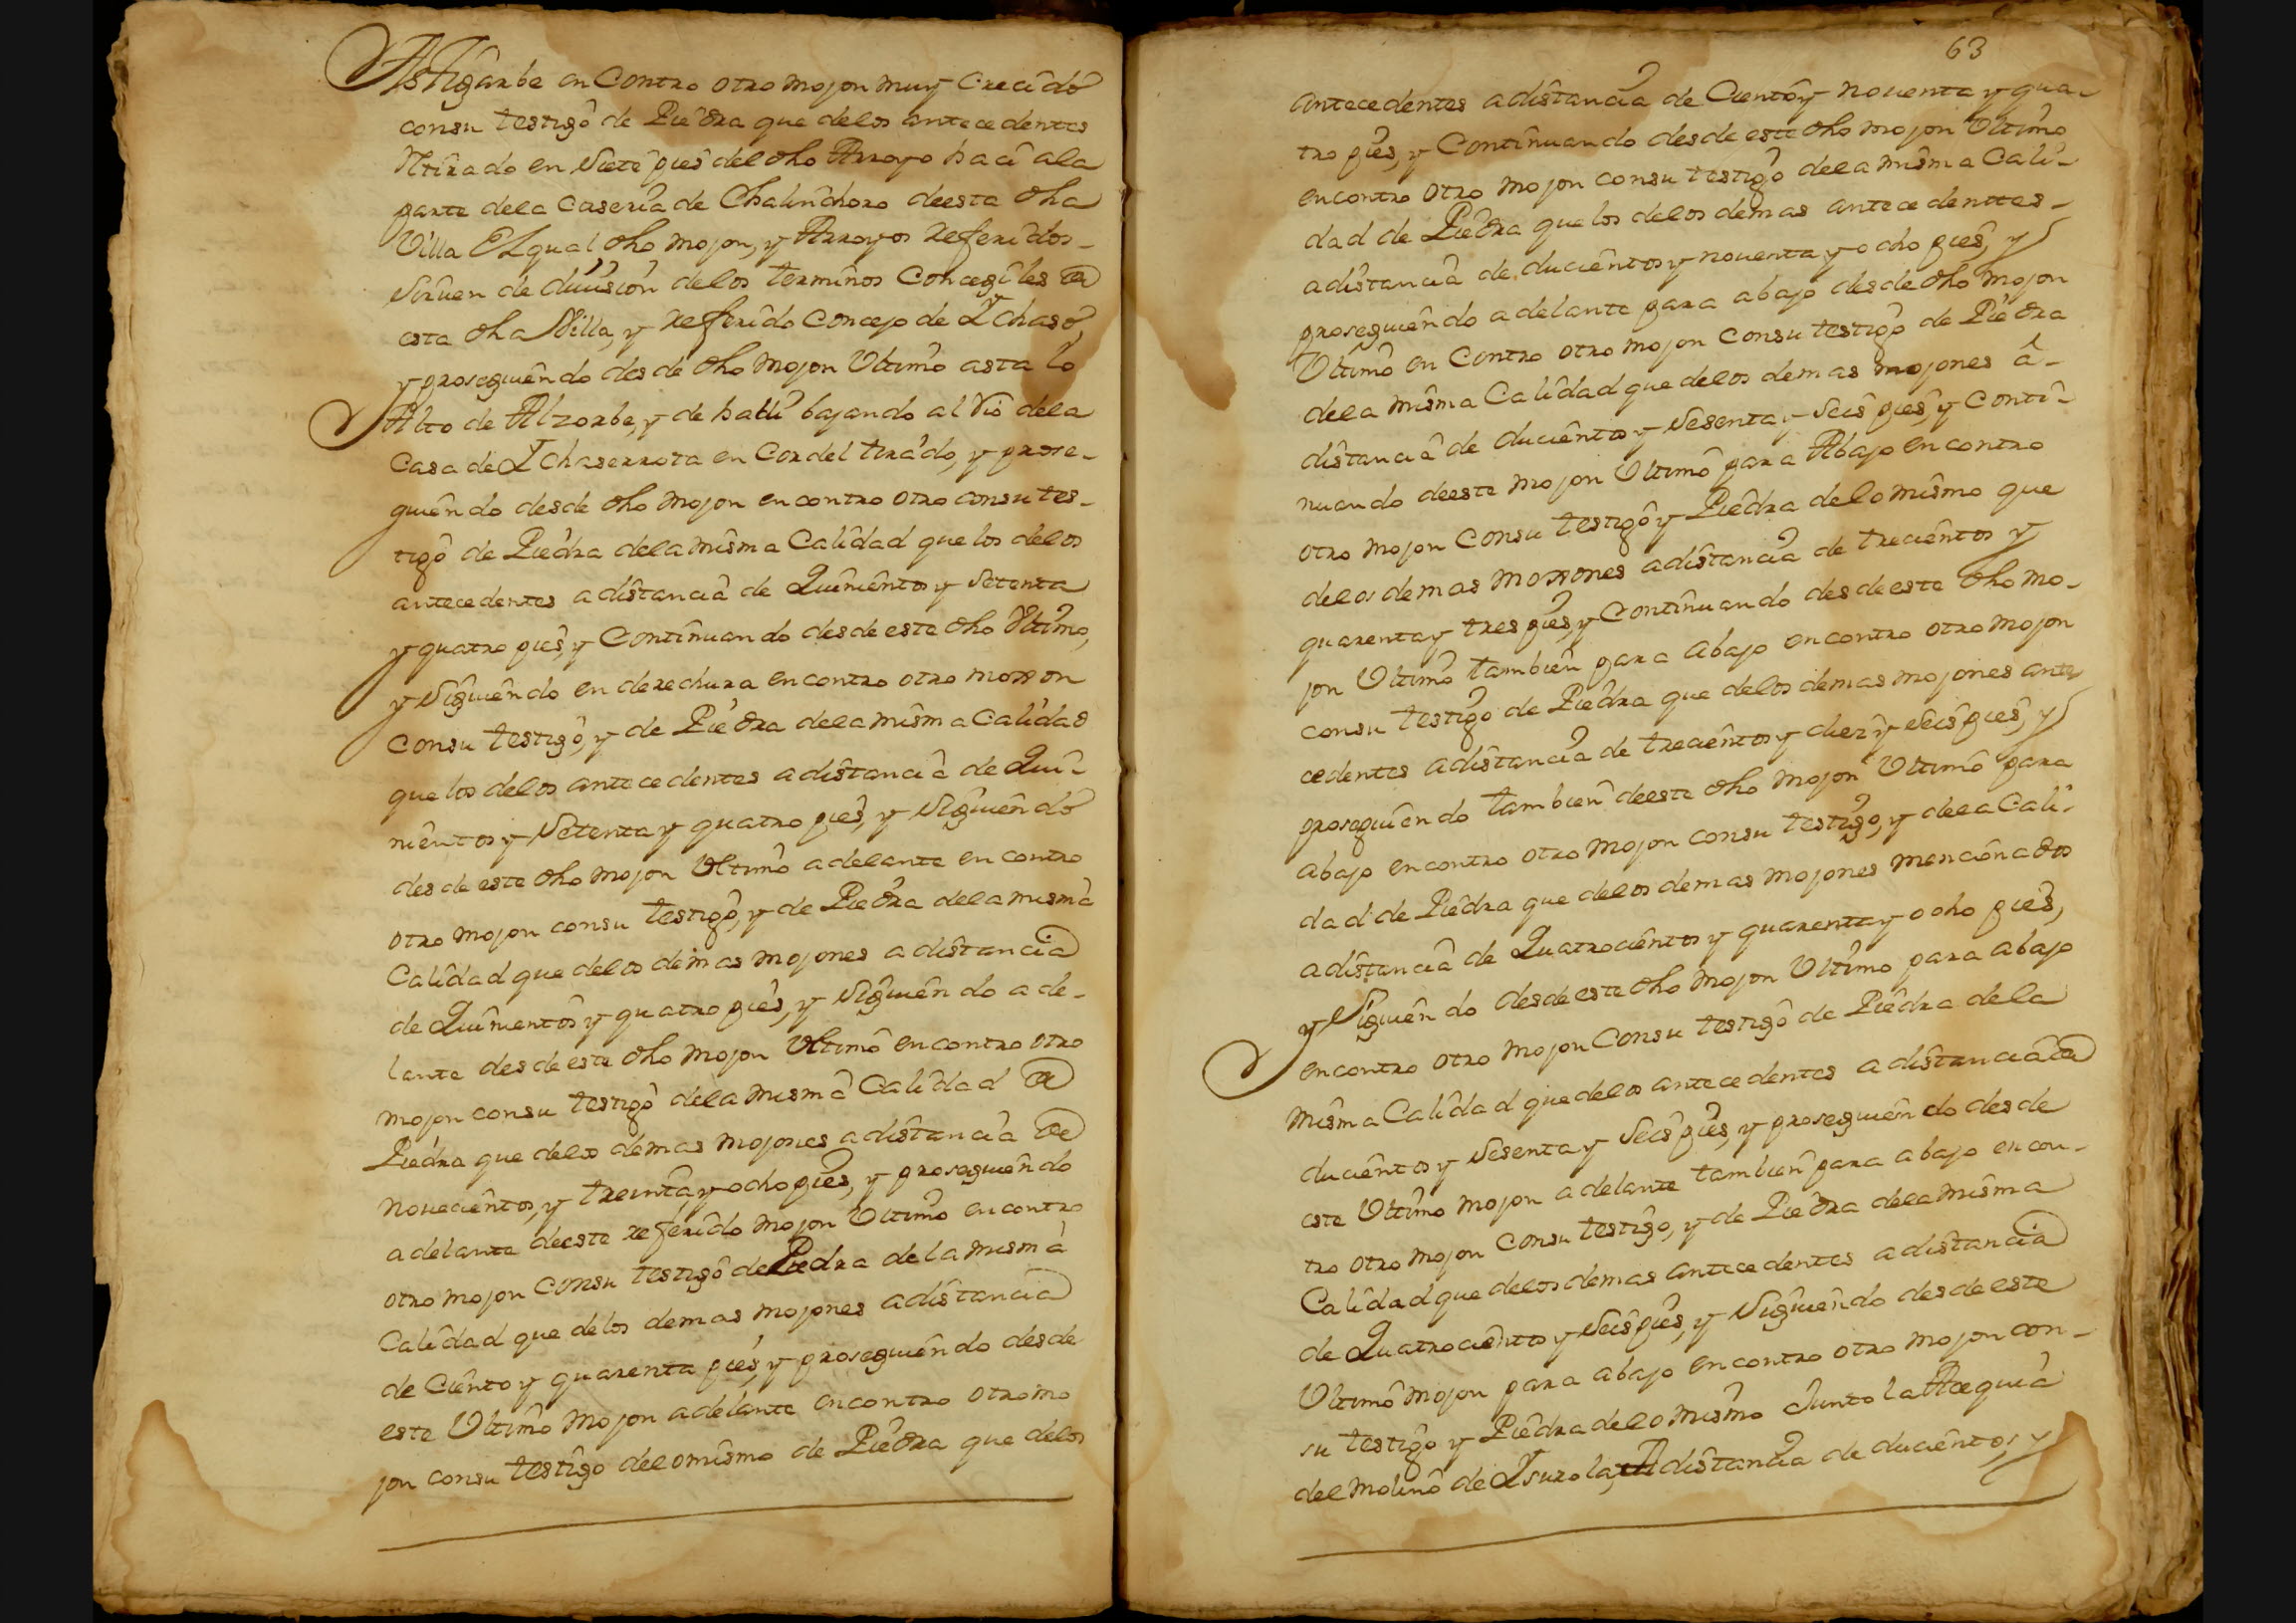 Astigarbe en Contro otro mojon muy Crecido
consu testigo de Piedra que delos antecedentes
Rtirado en Siete pies del dho Arroyo hacia ala
parte dela Caseria de Chalinchoro deesta dha
Villa El qual dho mojon, y Arroyos referidos
Sirven de division delos terminos Concegiles de
esta dha Villa, y referido Concejo de Ychaso,
y prosiguiendo desde dho mojon Ultimo asta lo
Alto de Alzorbe, y de halli bajando al Rio dela
Casa de Ychaserrota en Cordel tirado, y prose-
guiendo desde dho mojon encontro otro consu tes-
tigo de Piedra dela misma Calidad que los delos
antecedentes a distancia de Quinientos y Setenta
y quatro pies, y Continuando desde este dho Ultimo,
y Siguiendo en derechura encontro otro moxon
Consu testigo, y de Piedra dela misma Calidad
que los delos antecedentes a distancia de Qui-
nientos y Setenta y quatro pies, y Siguiendo
desde este dho mojon Ultimo adelante en contro
otro mojon consu testigo, y de Piedra dela misma
Calidad que delos demas mojones a distancia
de Quinientos y quatro pies, y Siguiendo a de-
lante desde este dho mojon Ultimo encontro otro
mojon consu testigo dela misma Calidad de
Piedra que delos demas mojones a distancia de
novecientos, y treinta y ocho pies, y prosiguiendo
adelante deeste referido mojon Ultimo encontro
otro mojon consu testigo de Piedra de la misma
Calidad que delos demas mojones adistancia
de Ciento y quarenta pies, y prosiguiendo desde
este Ultimo mojon adelante encontro otro mo
jon consu testigo delomismo de Piedra que delos
63
antecedentes adistancia de Ciento y noventa y qua-
tro pies, y Continuando desde este dho mojon Ultimo
encontro otro mojon consu testigo dela misma Cali-
dad de Piedra que los delos demas antecedenttes-
adistancia de ducientos y noventa y ocho pies, y
prosiguiendo adelante para abajo desde dho mojon
Ultimo en Contro otro mojon consu testigo de Piedra
dela misma Calidad que delos demas mojones a-
distancia de ducientos y Sesenta y Seis pies, y Conti-
nuando deeste mojon Ultimo para Abajo encontro
otro mojon Consu testigo y Piedra delo mismo que
delos demas moxones adistancia de trecientos y
quarenta y tres pies, y Continuando desde este dho mo-
jon Ultimo tambien para abajo encontro otro mojon
consu testigo de Piedra que delos demas mojones ante
cedentes adistancia de trecientos y diez y seis pies, y
prosiguiendo tambien deeste dho mojon Ultimo para
abajo encontro otro mojon consu testigo, y dela Cali-
dad de Piedra que delos demas mojones mencionados
adistancia de Quatrocientos y quarenta y ocho pies,
y Siguiendo desde este dho mojon Ultimo para abajo
encontro otro mojon Consu testigo de Piedra dela
misma Calidad que delos antecedentes adistancia de
ducientos y Sesenta y Seis pies, y prosiguiendo desde
este Ultimo mojon adelante tambien para abajo encon-
tro otro mojon consu testigo, y de Piedra dela misma
Calidad que delos demas antecedentes adistancia
de Quatrocientos y Seis pies, y Siguiendo desde este
Ultimo mojon para abajo encontro otro mojon con-
su testigo y Piedra delo mismo Junto la Acequia
del molino de Ysurola, Adistancia de ducientos, y